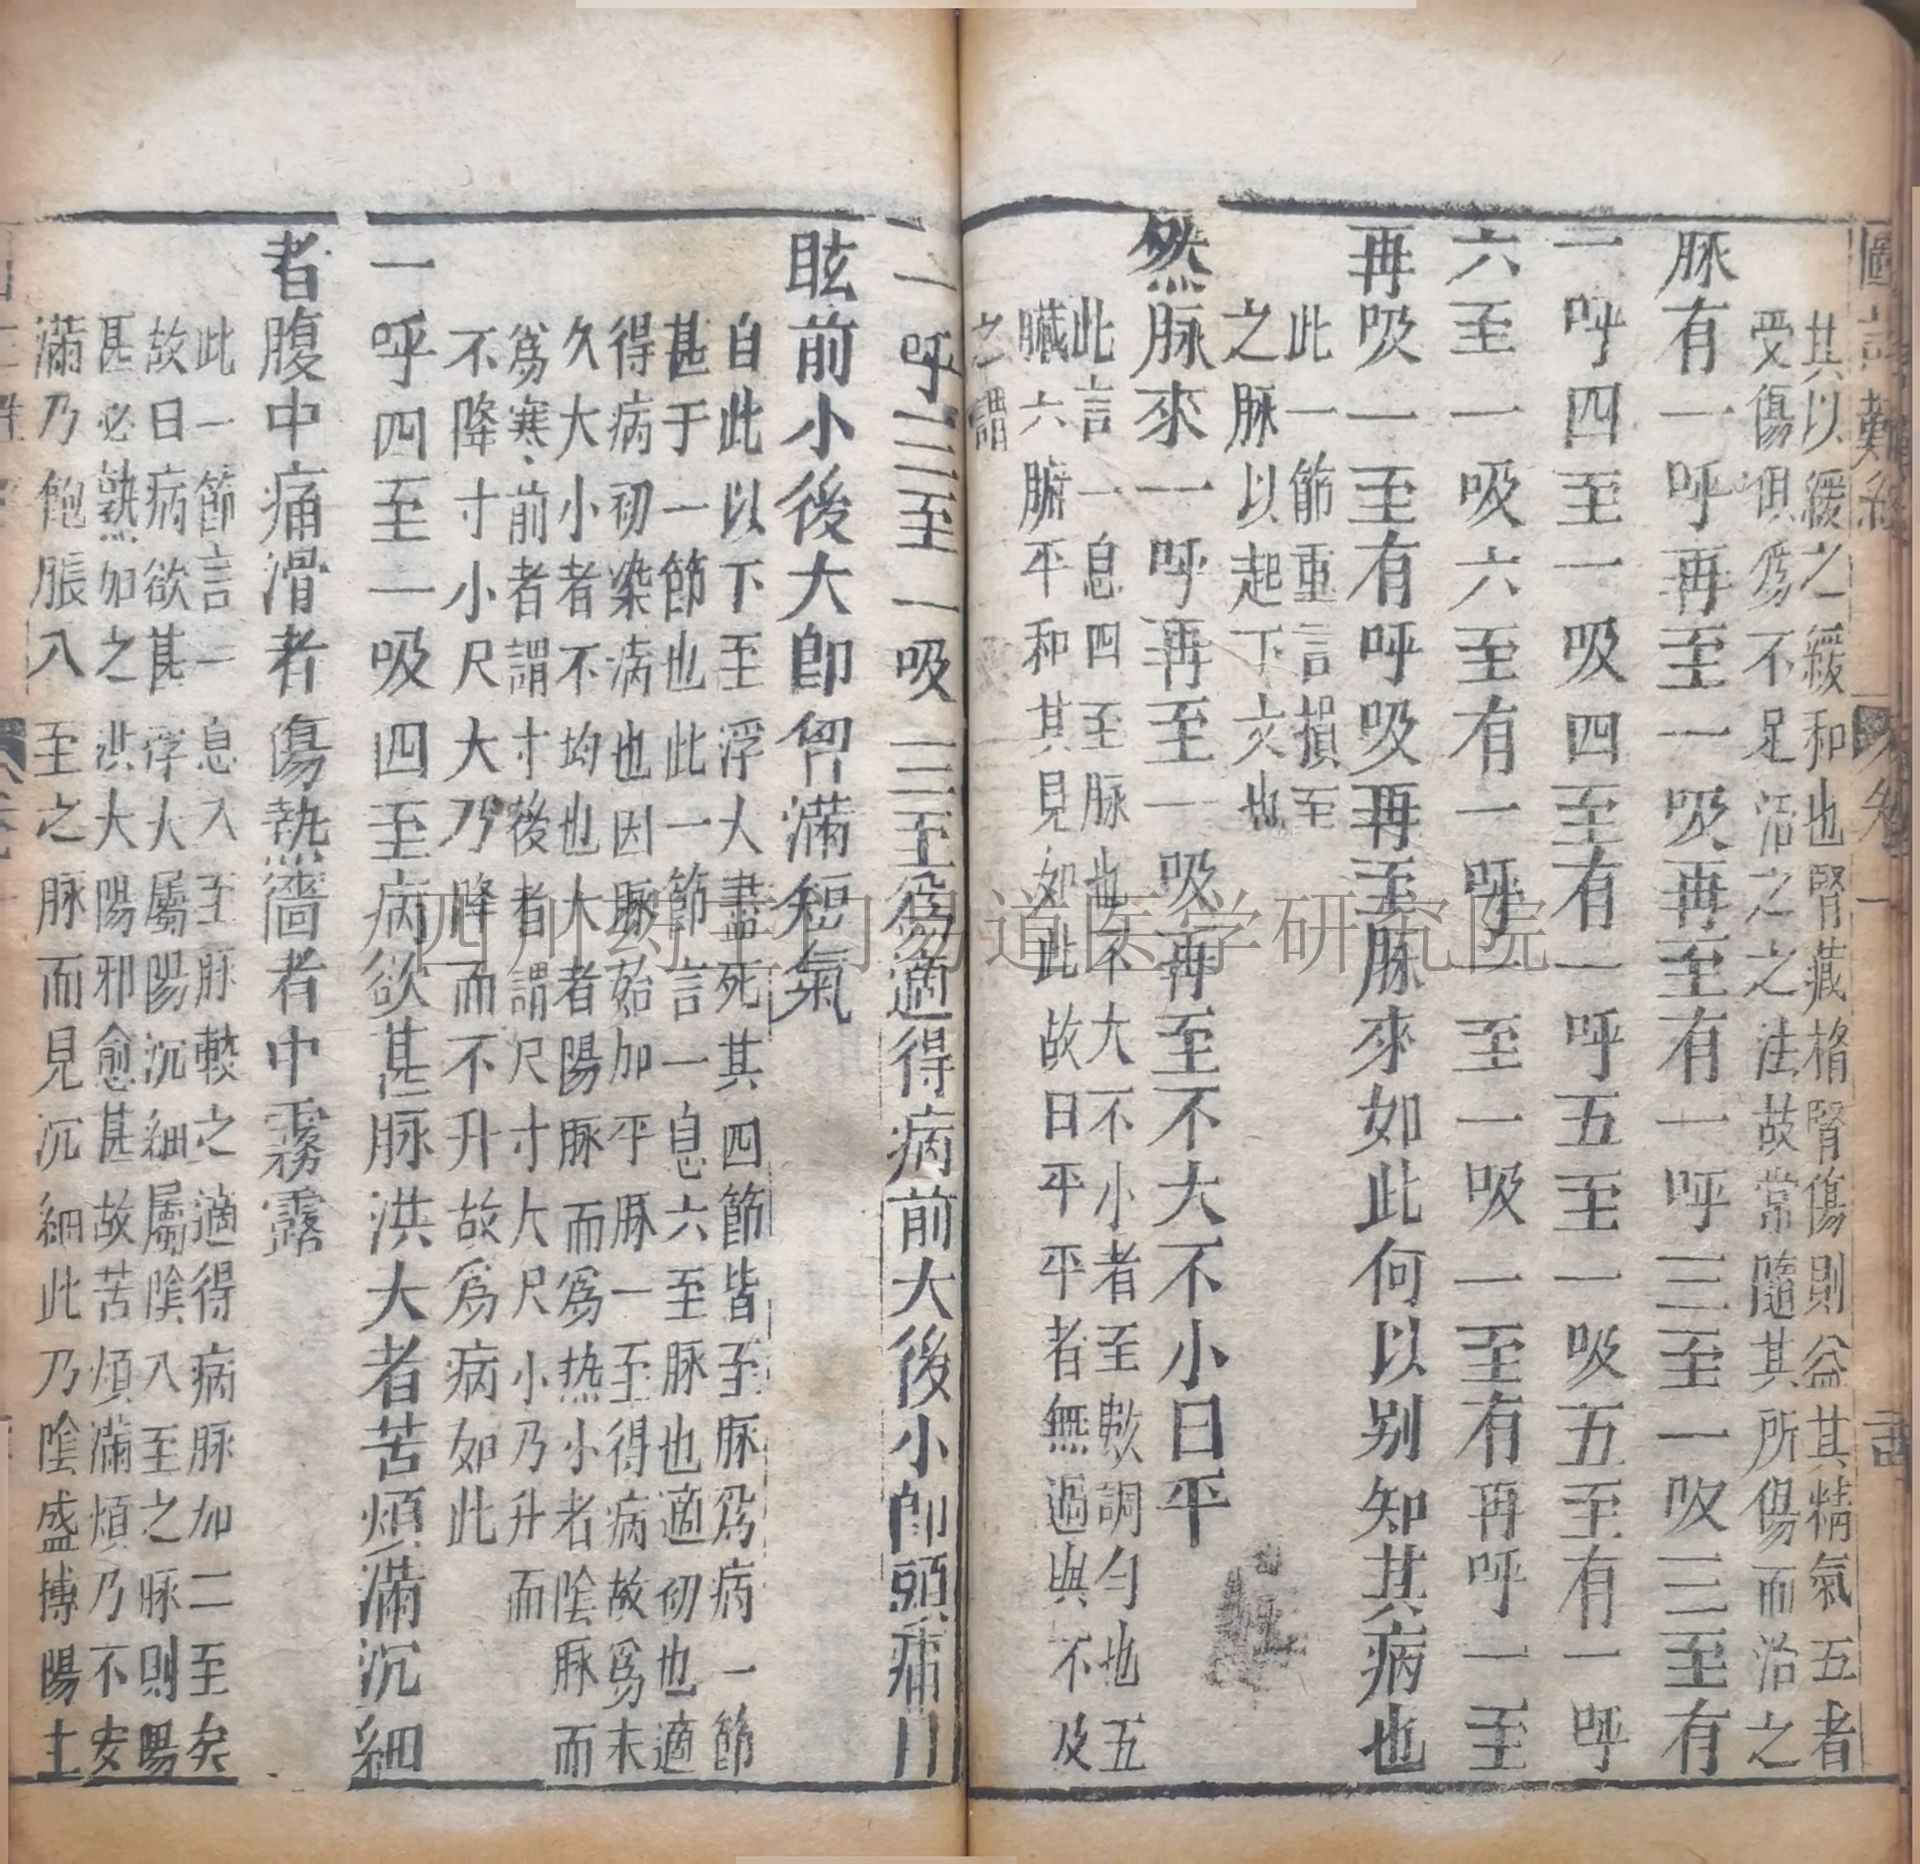 其以緩之緩和也腎藏格腎傷則益其精氣五者
受傷俱爲不足治之之法故常隨其所傷而治之
脉有一呼再至一吸再至有一呼三至一吸三至有
一呼四至一吸四至有一呼五至一吸五至有一呼
六至一吸六至有一呼一至一吸一至有再呼一至
再吸一至有呼吸再至脉來如此何以别知其病也
此一節重言損至
之脉以起下文也
然脉來一呼再至一吸再至不大不小曰平
此言一息四至脉也不大不小者至數調勻也五
臟六腑平和其見如此故曰平平者無過與不及
之謂
一呼三至一吸三至爲適得病前大後小卽頭痛目
眩前小後大卽胷滿短氣
自此以下至浮人盡死其四節皆至脉爲病一節
甚于一節也此一節言一息六至脉也適初也適
得病初染病也因脉始加平脉一至得病故爲未
久大小者不均也大者陽脉而爲热小者陰脉而
爲寒前者謂寸後者謂尺寸大尺小乃升而
不降寸小尺大乃降而不升故爲病如此
一呼四至一吸四至病欲甚脉洪大者苦煩滿沉細
者腹中痛滑者傷熱濇者中霧露
此一節言一息入至脉較之適得病脉加二至矣
故曰病欲甚浮大屬陽沉細屬陰八至之脉則陽
甚必熱加之洪大陽邪愈甚故苦煩滿煩乃不安
滿乃飽脹入至之脉而見沉細此乃陰盛搏陽土
圖註難經
卷一
四川药王门易道医学研究院